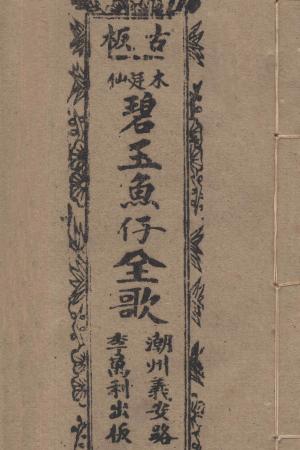 古板
木廷仙
碧玉魚仔全歌
潮州義安路
李萬利出版